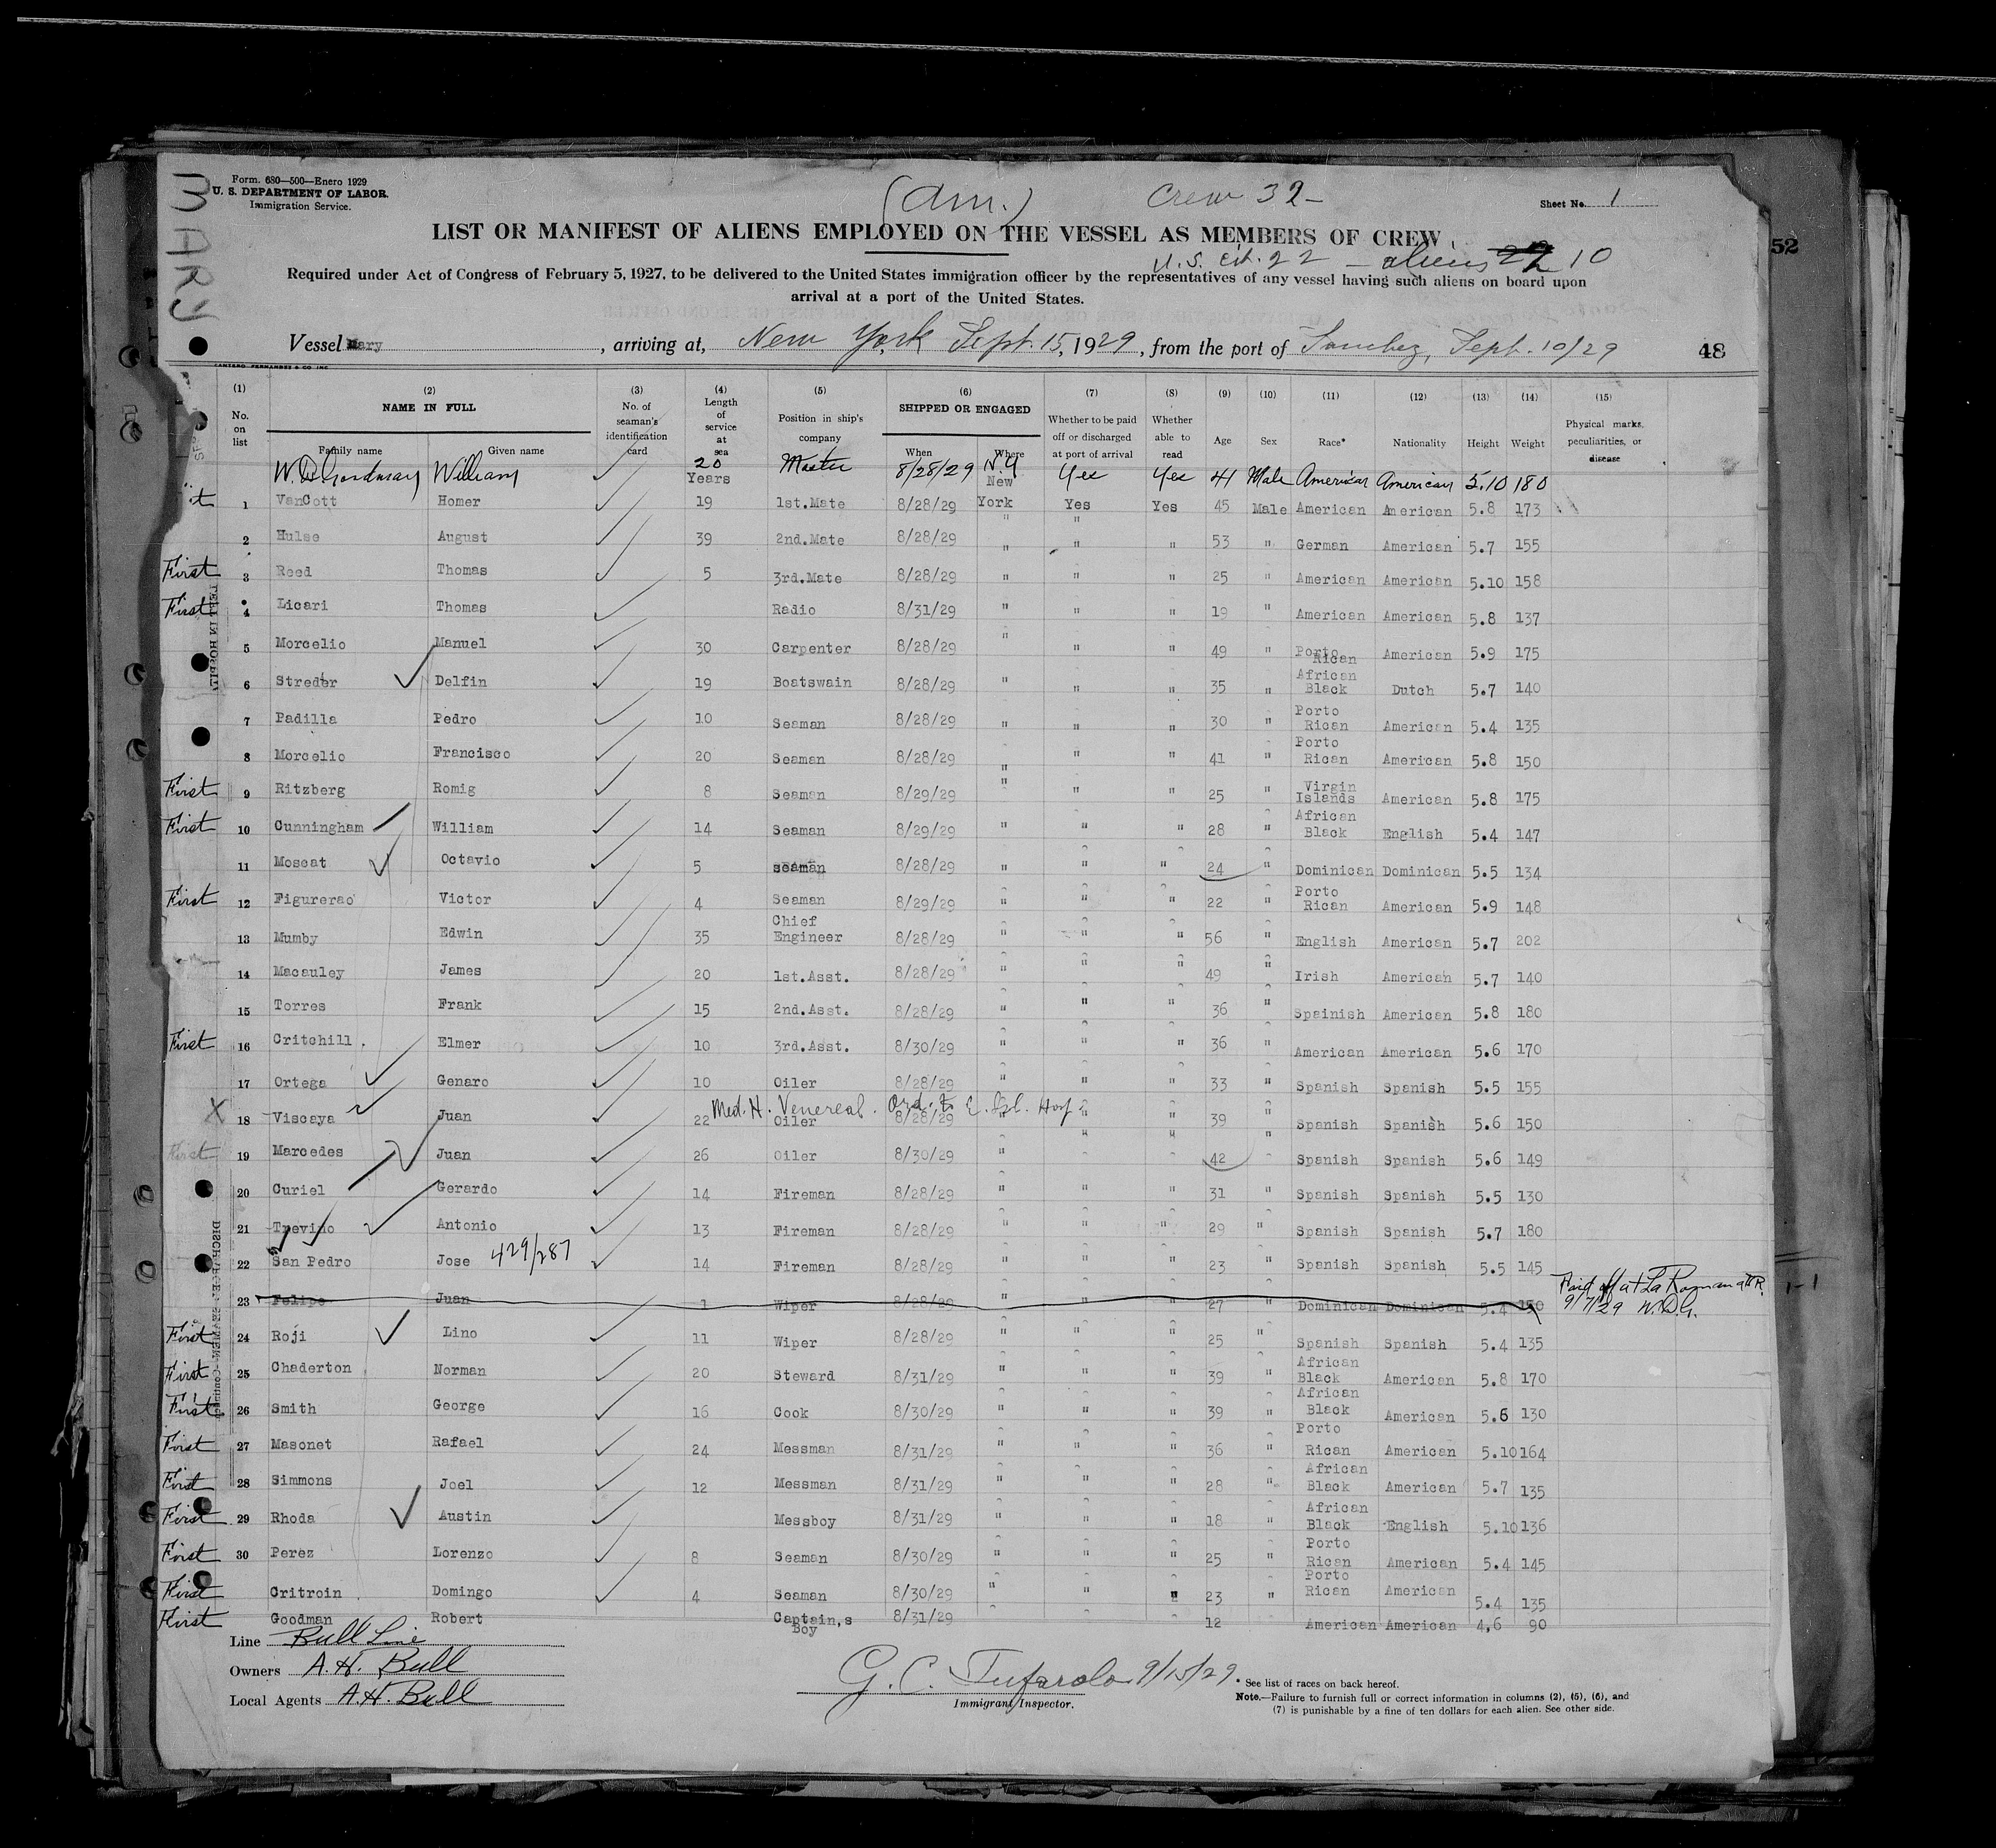 MARY
Form. 680—500—Enero 1929
U. S. DEPARTMENT OF LABOR.
Immigration Service.
(Am.)
Crew 32-
Sheet No. 1
LIST OR MANIFEST OF ALIENS EMPLOYED ON THE VESSEL AS MEMBERS OF CREW
52
U.S. cit. 22 - aliens 10
Required under Act of Congress of February 5, 1927, to be delivered to the United States immigration officer by the representatives of any vessel having such aliens on board upon
arrival at a port of the United States.
Vessel Mary, arriving at, New York Sept. 15, 1929, from the port of Sanchez, Sept. 10/29
48
(1) (2) (3) (4) (5) (6) (7) (8) (9) (10) (11) (12) (13) (14) (15)
No. on list NAME IN FULL Family name Given name No. of seaman's identification card Length of service at sea Position in ship's company SHIPPED OR ENGAGED When Where Whether to be paid off or discharged at port of arrival Whether able to read Age Sex Race* Nationality Height Weight Physical marks, peculiarities, or disease
William 20 Years Master 8/28/29 N.Y Yes Yes 41 Male American American 5.10 180
1 VanCott Homer 19 1st.Mate 8/28/29 New York Yes Yes 45 Male American American 5.8 173
2 Hulse August 39 2nd.Mate 8/28/29 " " " 53 " German American 5.7 155
First 3 Reed Thomas 5 3rd.Mate 8/28/29 " " " 25 " American American 5.10 158
First 4 Licari Thomas Radio 8/31/29 " " " 19 " American American 5.8 137
5 Morcelio Manuel 30 Carpenter 8/28/29 " " " 49 " Porto Rican American 5.9 175
6 Streder Delfin 19 Boatswain 8/28/29 " " " 35 " African Black Dutch 5.7 140
7 Padilla Pedro 10 Seaman 8/28/29 " " " 30 " Porto Rican American 5.4 135
8 Morcelio Francisco 20 Seaman 8/28/29 " " " 41 " Porto Rican American 5.8 150
First 9 Ritzberg Romig 8 Seaman 8/29/29 " " " 25 " Virgin Islands American 5.8 175
First 10 Cunningham William 14 Seaman 8/29/29 " " " 28 " African Black English 5.4 147
11 Moscat Octavio 5 seaman 8/28/29 " " " 24 " Dominican Dominican 5.5 134
First 12 Figurerao Victor 4 Seaman 8/29/29 " " " 22 " Porto Rican American 5.9 148
13 Mumby Edwin 35 Chief Engineer 8/28/29 " " " 56 " English American 5.7 202
14 Macauley James 20 1st.Asst. 8/28/29 " " " 49 " Irish American 5.7 140
15 Torres Frank 15 2nd.Asst. 8/28/29 " " " 36 " Spainish American 5.8 180
First 16 Critchill. Elmer 10 3rd.Asst. 8/30/29 " " " 36 " American American 5.6 170
17 Ortega Genaro 10 Oiler 8/28/29 " " " 33 " Spanish Spanish 5.5 155
Med. H. Venereal. Ord. to Hosp
X 18 Viscaya Juan 22 Oiler 8/28/29 " " 39 " Spanish Spanish 5.6 150
First 19 Marcedes Juan 26 Oiler 8/30/29 " " " 42 " Spanish Spanish 5.6 149
20 Curiel Gerardo 14 Fireman 8/28/29 " " " 31 " Spanish Spanish 5.5 130
21 Trevino Antonio 13 Fireman 8/28/29 " " " 29 " Spanish Spanish 5.7 180
22 San Pedro Jose 429/287 14 Fireman 8/28/29 " " " 23 " Spanish Spanish 5.5 145
23 Felipe Juan 1 Wiper 8/28/29 " " " 27 " Dominican Dominican 5.4 150 Paid off at La Romana D.R. 9/7/29 W.D.G.
First 24 Roji Lino 11 Wiper 8/28/29 " " " 25 " Spanish Spanish 5.4 135
First 25 Chaderton Norman 20 Steward 8/31/29 " " " 39 " African Black American 5.8 170
First 26 Smith George 16 Cook 8/30/29 " " " 39 " African Black American 5.6 130
First 27 Masonet Rafael 24 Messman 8/31/29 " " " 36 " Porto Rican American 5.10 164
First 28 Simmons Joel 12 Messman 8/31/29 " " " 28 " African Black American 5.7 135
First 29 Rhoda Austin Messboy 8/31/29 " " " 18 " African Black English 5.10 136
First 30 Perez Lorenzo 8 Seaman 8/30/29 " " " 25 " Porto Rican American 5.4 145
First Critroin Domingo 4 Seaman 8/30/29 " " " 23 " Porto Rican American 5.4 135
First Goodman Robert Captain,s Boy 8/31/29 12 American American 4,6 90
Line Bull Line
Owners A.H. Bull
Local Agents A.H. Bull
G. C. Tufarolo 9/15/29
Immigrant Inspector.
* See list of races on back hereof.
Note.—Failure to furnish full or correct information in columns (2), (5), (6), and
(7) is punishable by a fine of ten dollars for each alien. See other side.